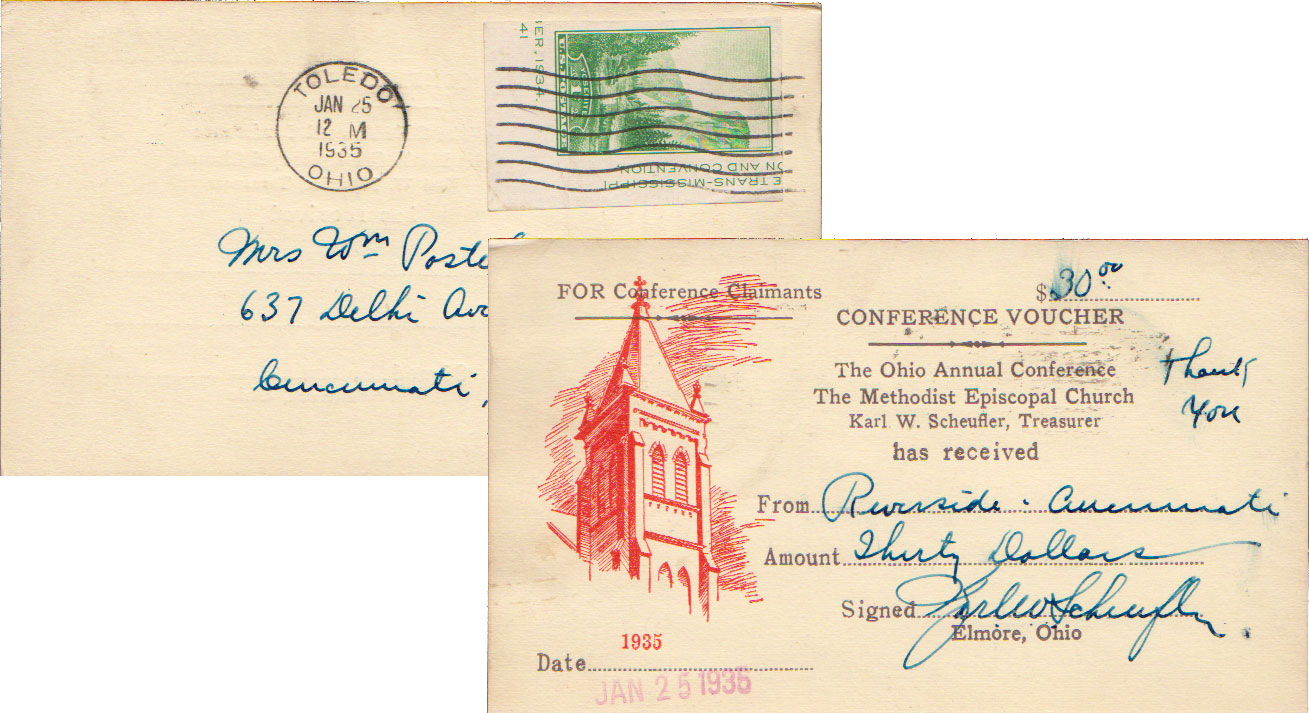 TOLEDO
JAN 25
12 M
1935
OHIO
IER, 1934.
41
U.S. POSTAGE
YOSEMITE
1
E TRANS-MISSISSIPPI
ON AND CONVENTION,
Mrs Wm Poste
637 Delhi Ave
Cincinnati,
FOR Conference Claimants
$30.00
CONFERENCE VOUCHER
The Ohio Annual Conference
The Methodist Episcopal Church
Karl W. Scheufler, Treasurer
has received
Thank
You
From Riverside - Cincinnati
Amount Thirty Dollars
Signed Karl W Scheufler
Elmore, Ohio
1935
Date
JAN 25 1935